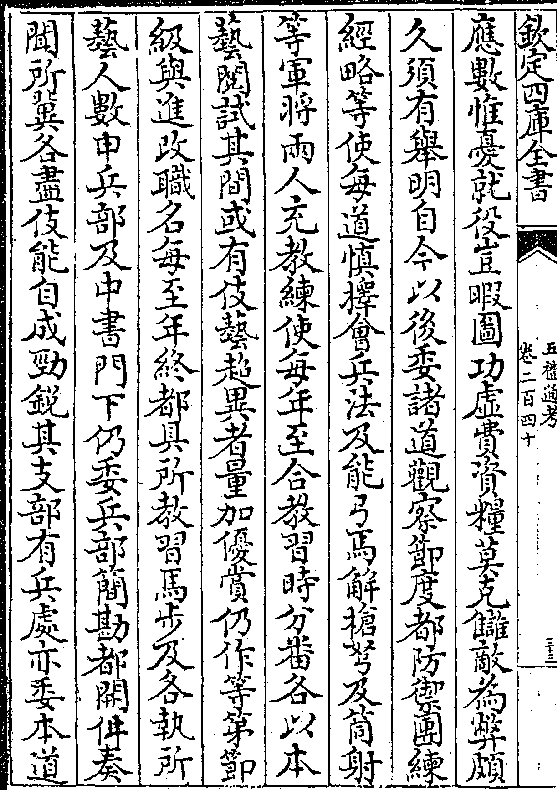 欽定四庫全書
五禮通考
卷二百四十
三十三
應數惟憂就役豈暇圖功虛費資糧莫克讎敵為弊頗
久須有舉明自今以後委諸道觀察節度都防禦團練
經略等使每道慎擇會兵法及能弓馬解槍弩及筒射
等軍將兩人充教練使每年至合教習時分番各以本
藝閱試其間或有伎藝超異者量加優賞仍作等第節
級與進改職名每至年終都具所教習馬步及各執所
藝人數申兵部及中書門下仍委兵部簡勘都開件奏
聞所冀各盡伎能自成勁銳其支部有兵處亦委本道